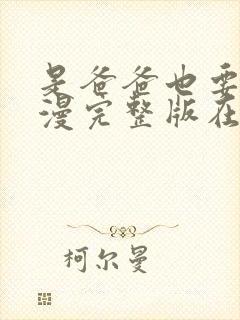 是爸爸也要
漫完整版在
柯尔曼